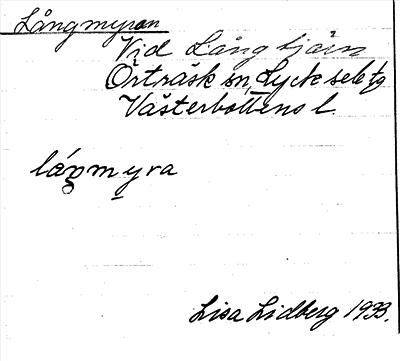 Långmyran
Vid Långtjärn
Örträsk sn, Lycksele tg
Västerbottens l.
myra
Lisa Lidberg 1933.